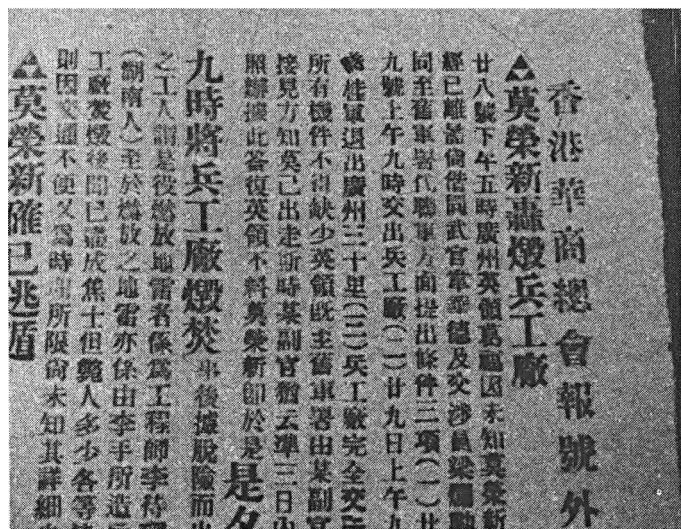 香港華商總會報號外
▲莫榮新轟燬兵工廠
廿八號下午五時廣州英領因未知莫榮新
經已離偕同武官韋德及交涉員梁
同至舊軍署代聯軍方面提出條件二項(一)廿
九號上午九時交出兵工廠(二)廿九日上午九
桂軍退出廣州三十里(三)兵工廠完全交
所有機件不得缺少英領旣主舊軍署由某副官
接見方知莫已出走斯時某副官猶云準三日內
照辦據此答復英領不料莫榮新卽於是是夕
九時將兵工廠燬焚事後據脫險而出
之工人謂是役燃放地雷者係爲工程師李
(湖南人)至於燃放之地雷亦係由李手所造
工廠焚燬後聞已盡成焦土但斃人多少各等
則因交通不便又爲時所限尙未知其詳細
▲莫榮新確已逃遁